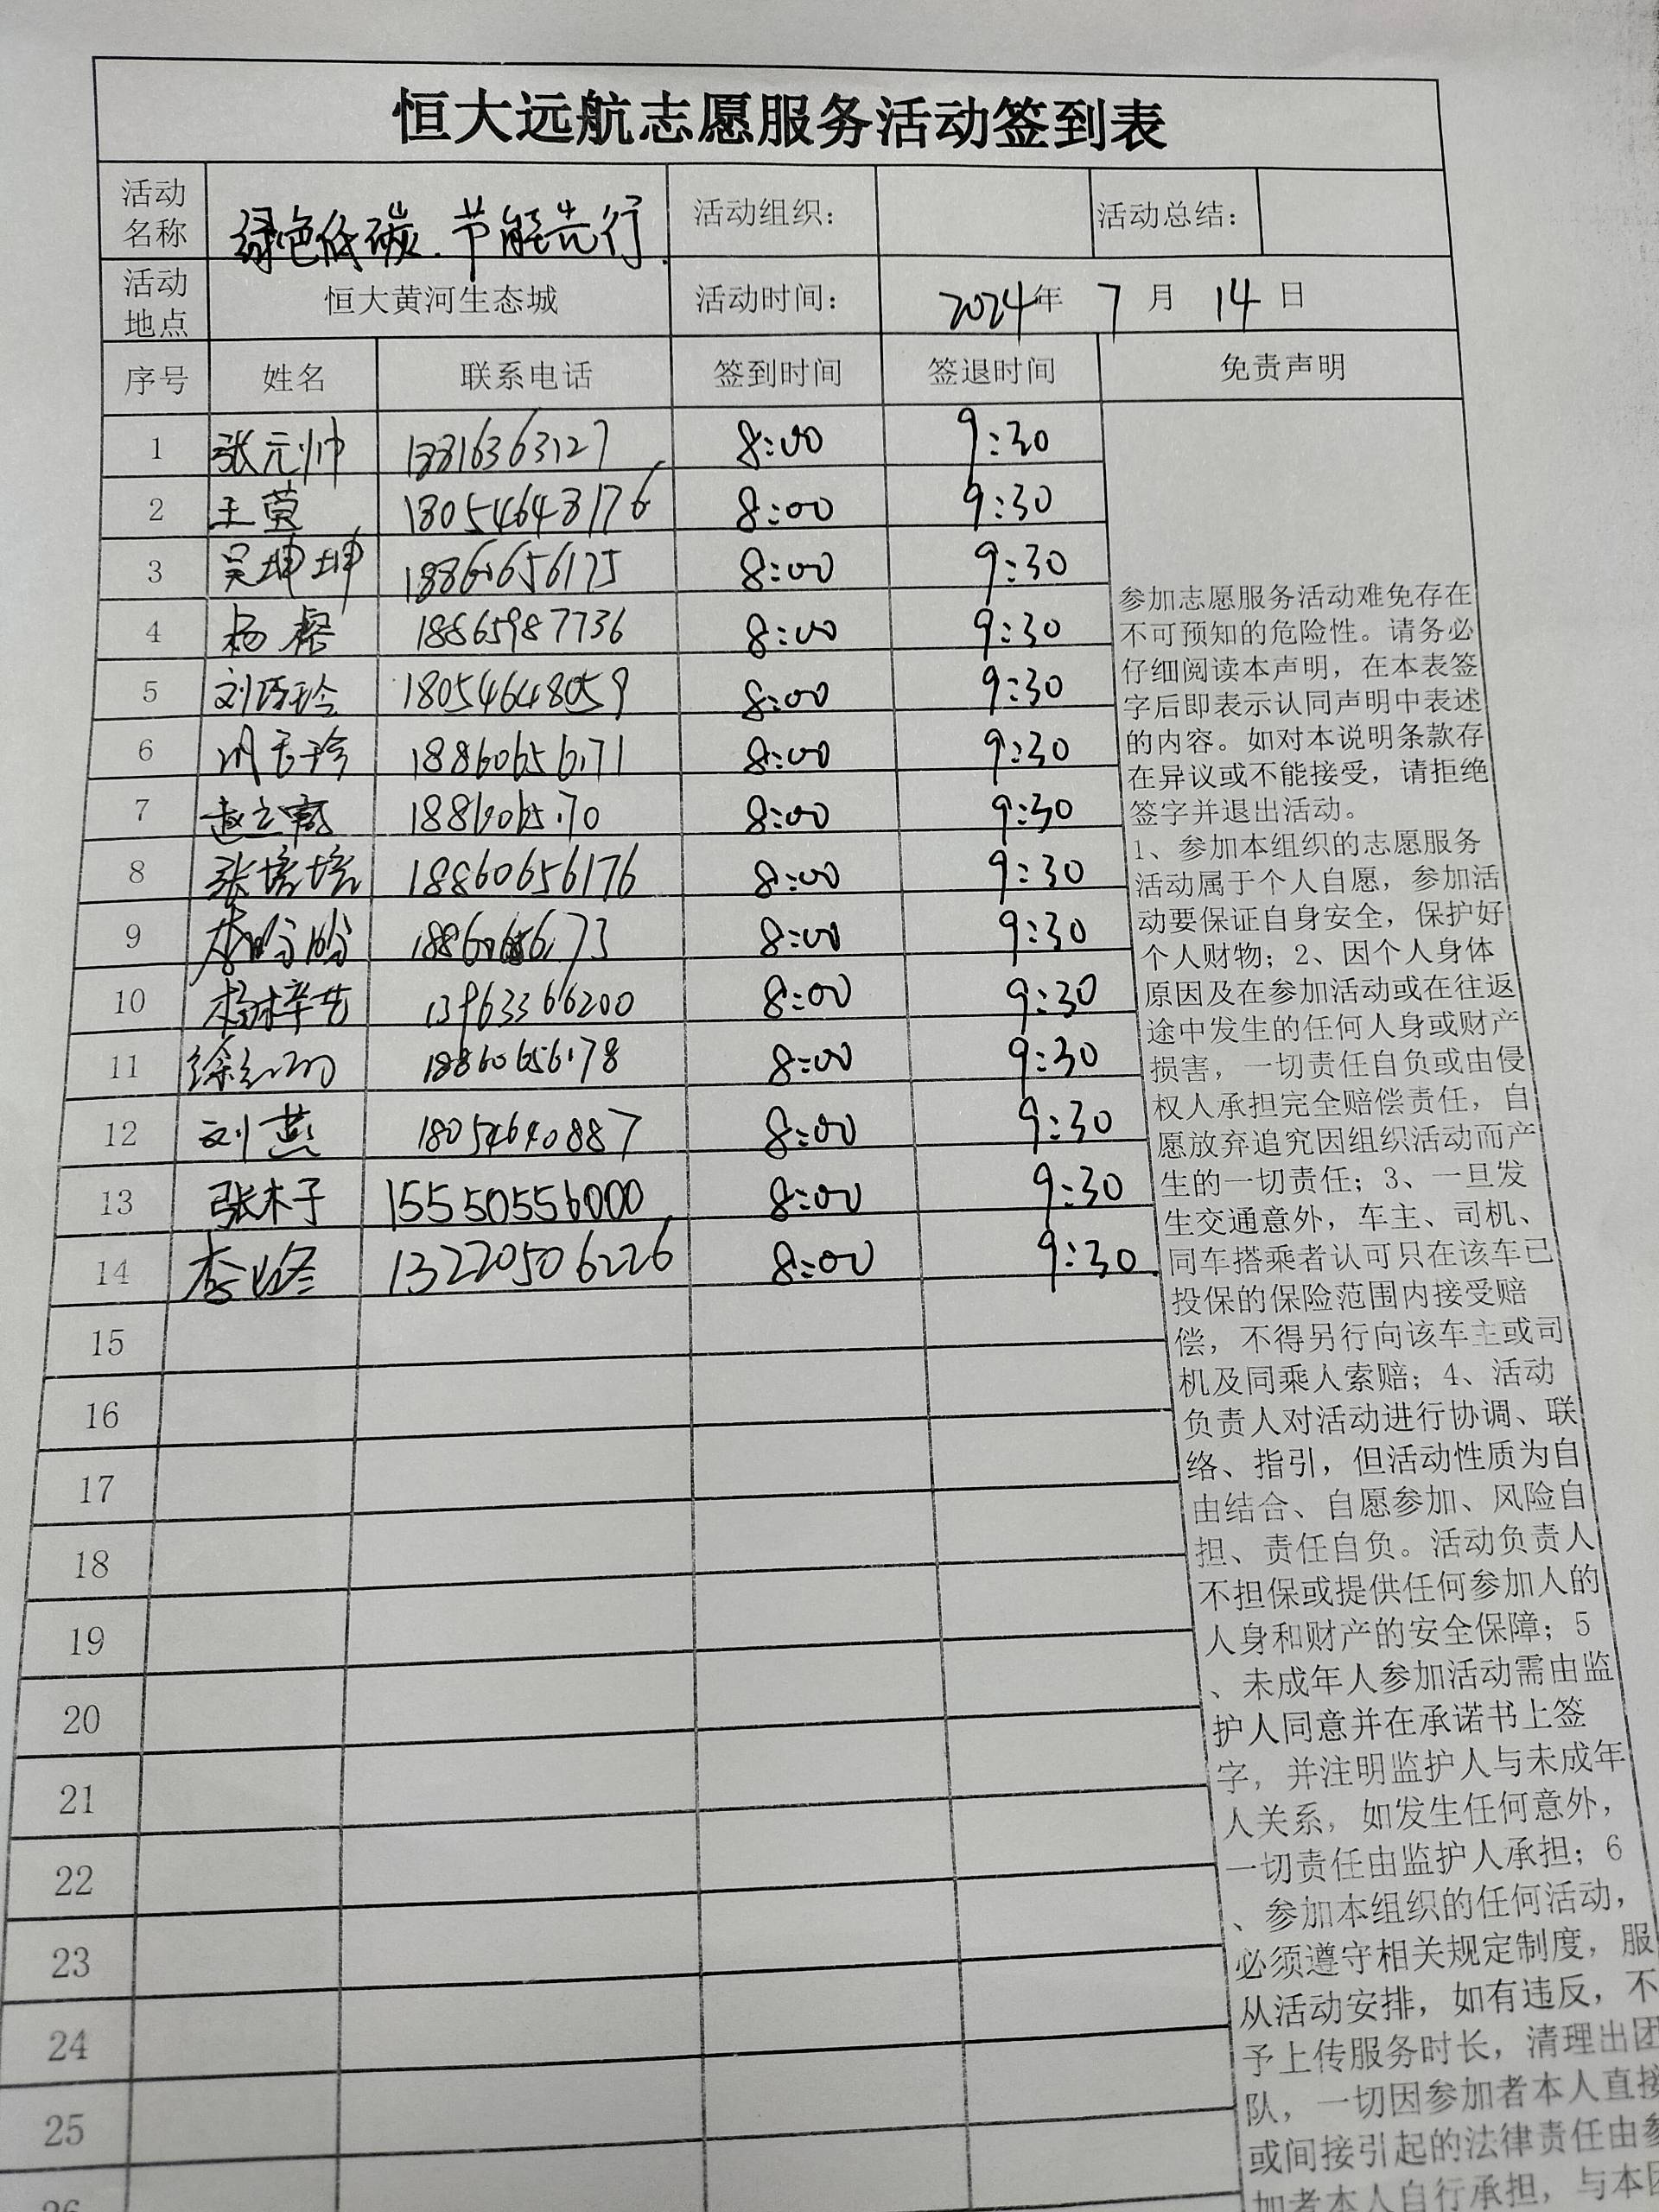 恒大远航志愿服务活动签到表
活动名称 绿色低碳.节能先行. 活动组织： 活动总结：
活动地点 恒大黄河生态城 活动时间： 2024年 7月 14日
序号 姓名 联系电话 签到时间 签退时间 免责声明
1 张元帅 8:00 9:30
2 王萸 18054648176 8:00 9:30
3 吴坤坤 18860656175 8:00 9:30
4 杨 18865987736 8:00 9:30
5 刘巧玲 18054648059 8:00 9:30
6 18860656171 8:00 9:30
7 8:00 9:30
8 张培培 18860656176 8:00 9:30
9 李盼盼 8:00 9:30
10 杨梓艺 13963366200 8:00 9:30
11 18860656178 8:00 9:30
12 刘燕 18054640887 8:00 9:30
13 张木子 15550556000 8:00 9:30
14 李 13220506226 8:00 9:30
15
16
17
18
19
20
21
22
23
24
25
26
参加志愿服务活动难免存在
不可预知的危险性。请务必
仔细阅读本声明，在本表签
字后即表示认同声明中表述
的内容。如对本说明条款存
在异议或不能接受，请拒绝
签字并退出活动。
1、参加本组织的志愿服务
活动属于个人自愿，参加活
动要保证自身安全，保护好
个人财物；2、因个人身体
原因及在参加活动或在往返
途中发生的任何人身或财产
损害，一切责任自负或由侵
权人承担完全赔偿责任，自
愿放弃追究因组织活动而产
生的一切责任；3、一旦发
生交通意外，车主、司机、
同车搭乘者认可只在该车已
投保的保险范围内接受赔
偿，不得另行向该车主或司
机及同乘人索赔；4、活动
负责人对活动进行协调、联
络、指引，但活动性质为自
由结合、自愿参加、风险自
担、责任自负。活动负责人
不担保或提供任何参加人的
人身和财产的安全保障；5
、未成年人参加活动需由监
护人同意并在承诺书上签
字，并注明监护人与未成年
人关系，如发生任何意外，
一切责任由监护人承担；6
、参加本组织的任何活动，
必须遵守相关规定制度，服
从活动安排，如有违反，不
予上传服务时长，清理出团
队，一切因参加者本人直接
或间接引起的法律责任由参
加者本人自行承担，与本团